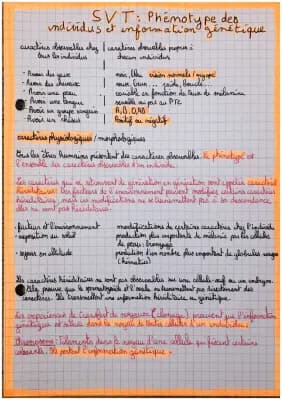 SVT : Phénotype des
individus et information génétique
caractères observables chez tous les individus | caractères observables propres à chacun individus
- Avoir des yeux | noir, bleu vision normale / myope
- Avoir des cheveux | roux, brun ... raide, bouclé...
- Avoir une peau | variable en fonction du taux de mélanine
- Avoir une langue | sensible ou pas au PTC
- Avoir un groupe sanguin | A, B, O, AB
- Avoir un rhésus | Positif ou négatif
caractères physiologiques / morphologiques
Tous les êtres humains présentent des caractères observables. Le phénotype est
l'ensemble des caractères observables d'un individu.
Les caractères qui se retrouvent de génération en génération sont appelés caractères
héréditaires. Les facteurs de l'environnement peuvent modifier certains caractères
héréditaires, mais ces modifications ne se transmettent pas à la descendance
elles ne sont pas héréditaires.
facteur de l'environnement | modifications de certains caractères chez l'individu
- exposition au soleil | production plus importante de mélanine par les cellules
de peau : bronzage
- séjour en altitude | production d'un nombre plus important de globules rouges
(hématies)
Les caractères héréditaires ne sont pas observables sur une cellule-œuf ou un embryon.
Cela prouve que le spermatozoïde et l'ovule ne transmettent pas directement des
caractères. Ils transmettent une information héréditaire ou génétique.
Les expériences de transfert de noyaux (clonage) prouvent que l'information
génétique est située dans le noyau de toutes cellules d'un individu.
Chromosome : Filaments dans le noyau d'une cellule qui fixent certains
colorants. Ils portent l'information génétique.